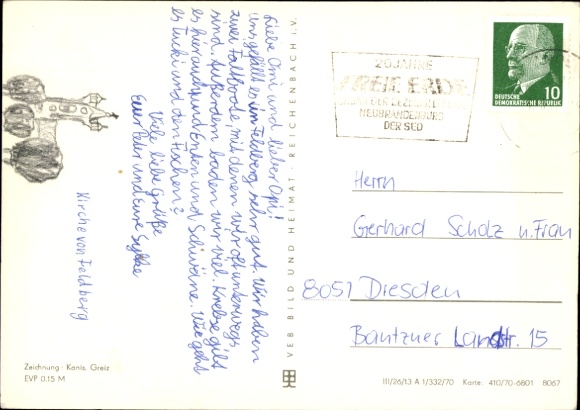 Liebe Omi und lieber Opi!
Uns gefällt es in Feldberg sehr gut. Wir haben
zwei Faltboote, mit denen wir oft unterwegs
sind. Außerdem baden wir viel. Krebse gibt
es hier und und Enten und Schwäne. Wie geht
es Tucki und den Fischen?
Viele liebe Grüße
Euer Peter und Eure Sylke
Kirche von Feldberg
Zeichnung: Kanis, Greiz
EVP 0.15 M
VEB BILD UND HEIMAT · REICHENBACH i. V.
20 JAHRE
FREIE ERDE
ORGAN DER BEZIRKSLEITUNG
NEUBRANDENBURG
DER SED
10
DEUTSCHE
DEMOKRATISCHE REPUBLIK
Herrn
Gerhard Scholz u. Frau
8051 Dresden
Bautzner Landstr. 15
III/26/13 A 1/332/70 Karte: 410/70-6801 8067